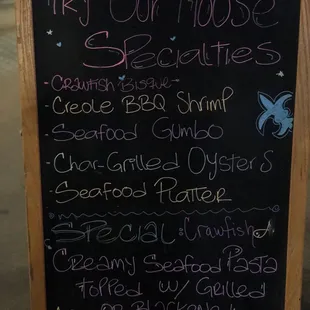 Try Our House
Specialties
- Crawfish Bisque -
- Creole BBQ Shrimp
- Seafood Gumbo
- Char-Grilled Oysters
- Seafood Platter
Special: Crawfish
Creamy Seafood Pasta
topped w/ Grilled
or Blackened